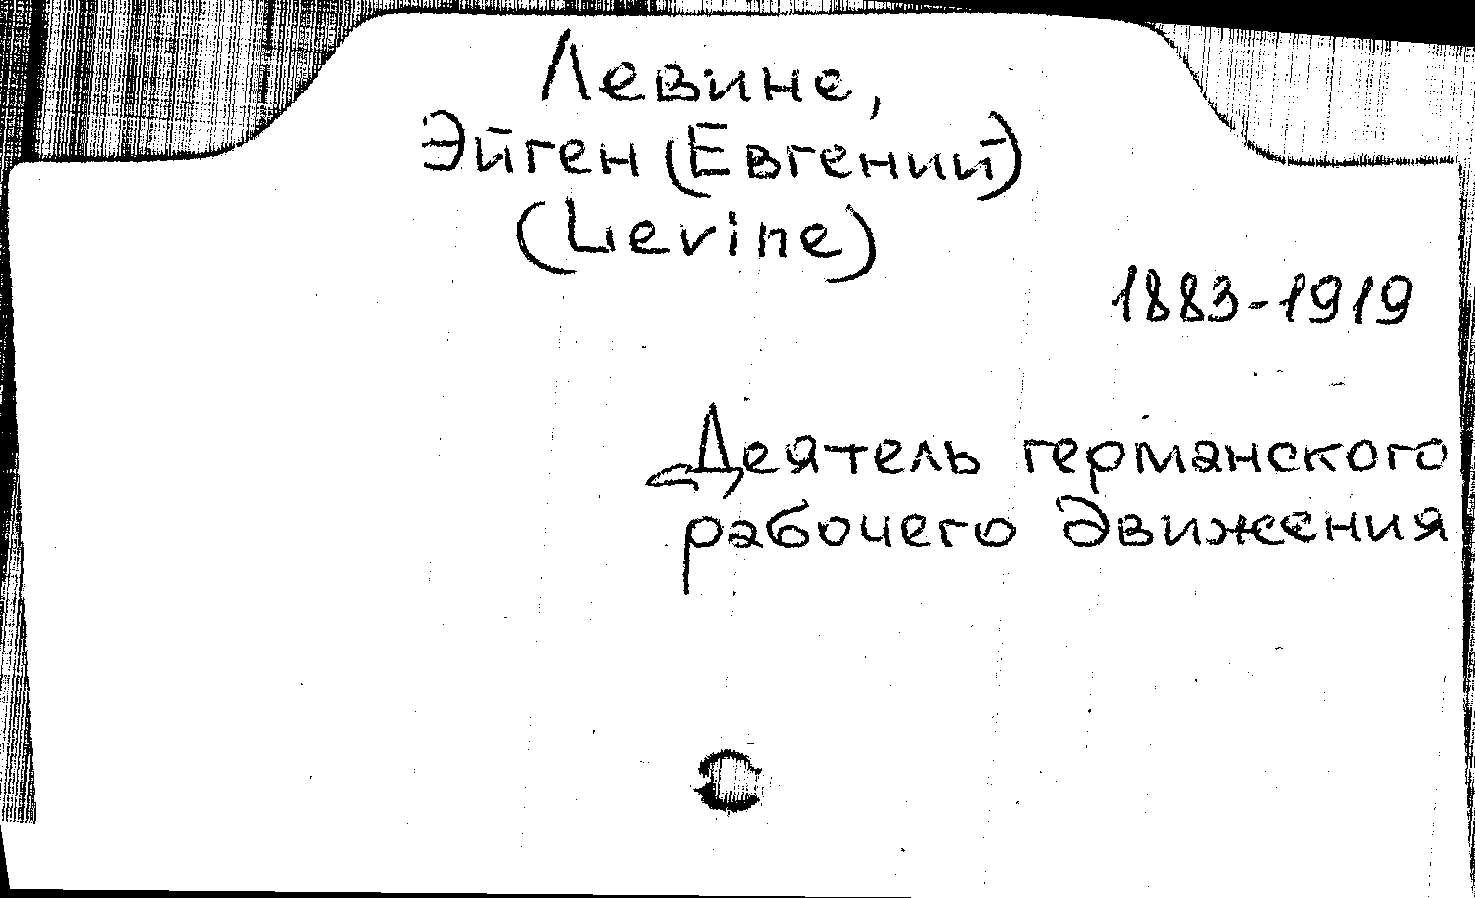 Левине,
Эйген (Евгений)
(Levine)
1883-1919
Деятель германского
рабочего движения